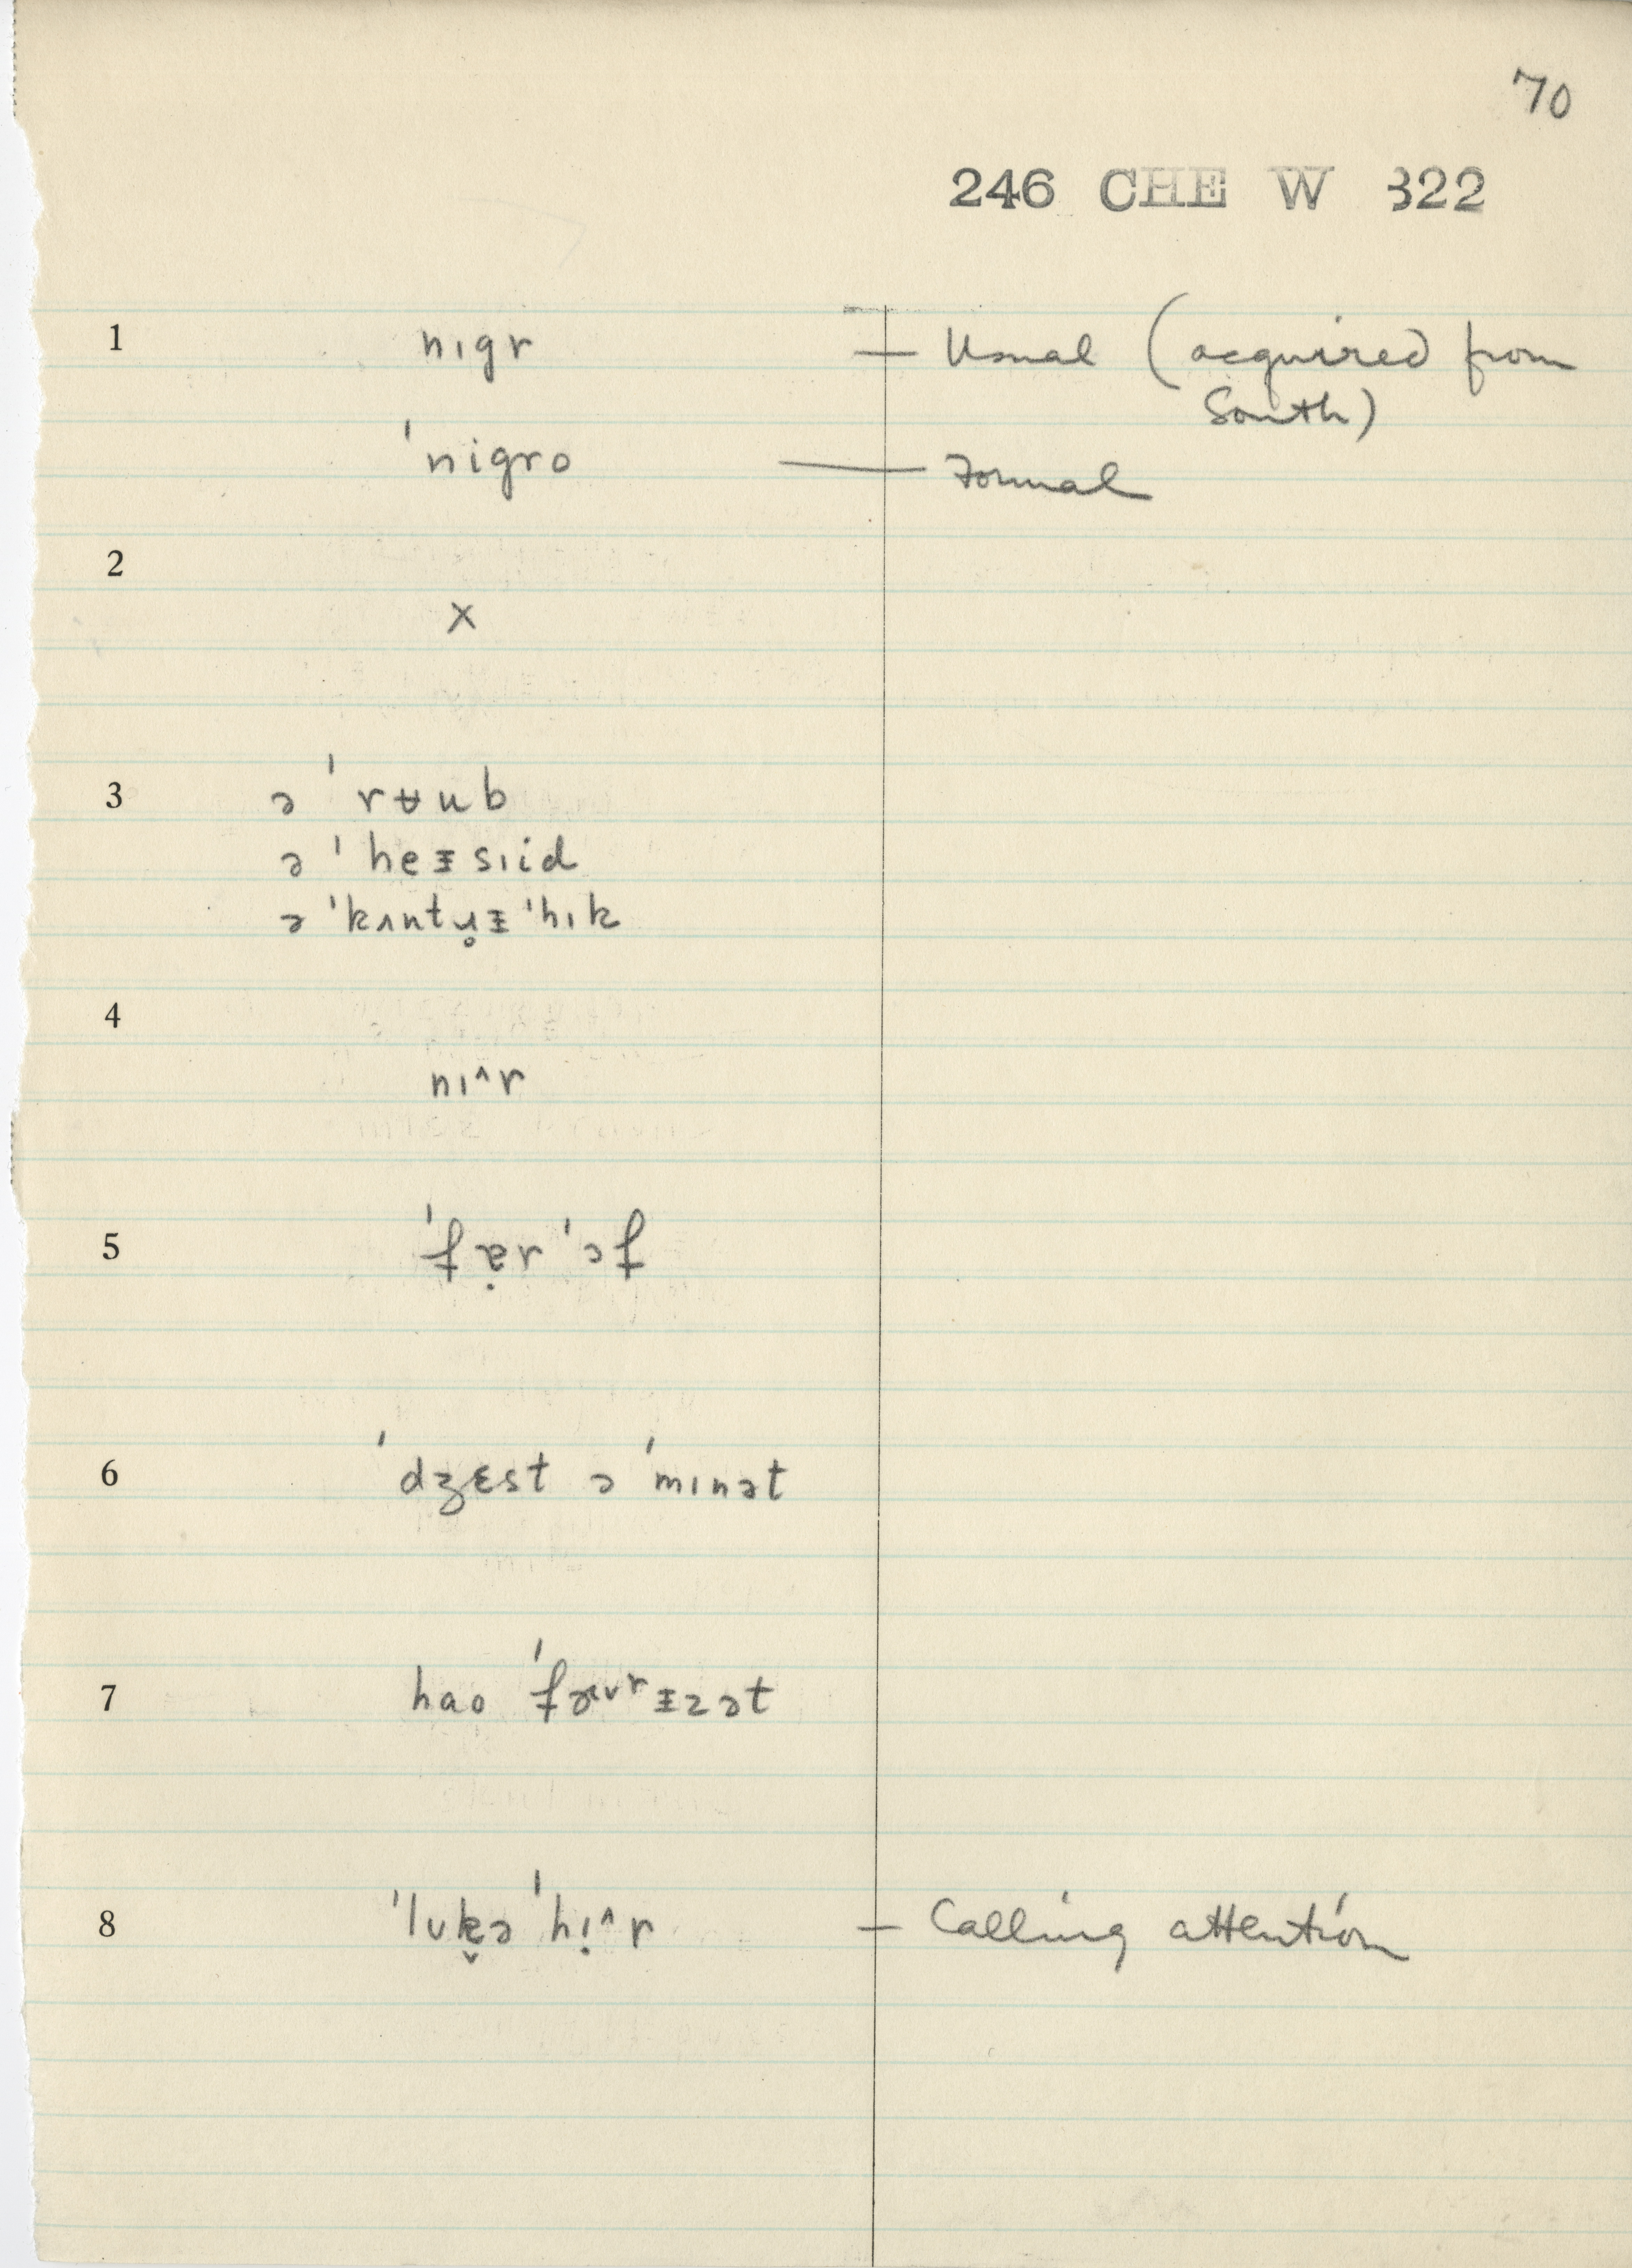 70
246 CHE W 322
1 nɪgr — Usual (acquired from
South)
ˈnigro — Formal
2
x
3 ə ˈrʉub
ə ˈheᵻsɪid
ə ˈkʌntɹ̥ᵻ ˈhɪk
4
nɪ^r
5 ˈfɐ̣r ˈɔf
6 ˈdʒɛst ə ˈmɪnət
7 hao ˈfɚᵻzət
8 ˈlʊk̬ə ˈhɪ̣^r — Calling attention